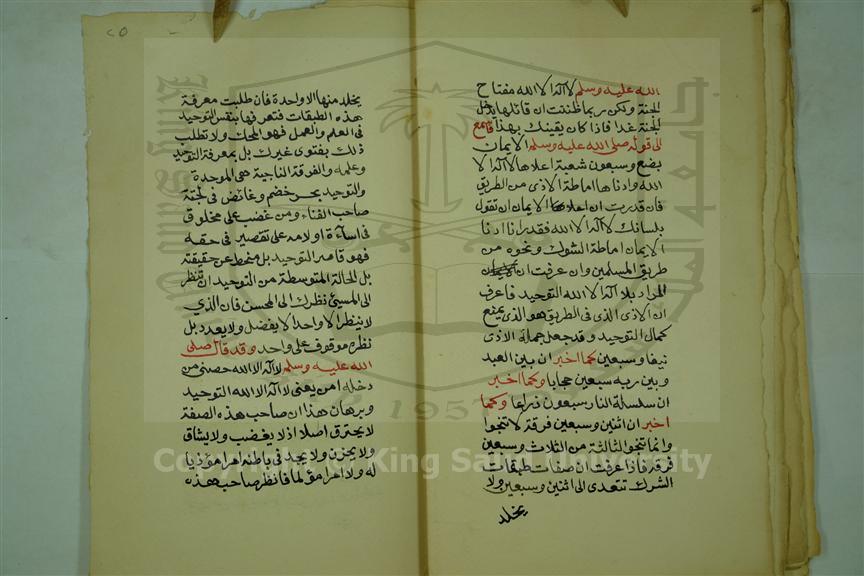 الله عليه وسلم لا اله الا الله مفتاح
الجنة ولكن ربما ظننت ان قائلها يدخل
الجنة غدا فاذا كان يقينك بهذا فاسمع
الى قوله صلى الله عليه وسلم الايمان
بضع وسبعون شعبة اعلاها لا اله الا
الله وادناها اماطة الاذى من الطريق
فان قدرت ان اعلاها الايمان ان تقول
بلسانك لا اله الا الله فقدر اذا ادنا
الايمان اماطة الشوك ونحوه من
طريق المسلمين وان عرفت ان
المراد بلا اله الا الله التوحيد فاعرف
ان الاذى الذى فى الطريق هو الذى يمنع
كمال التوحيد وقد جعل جملة الاذى
نيفا وسبعين كما اخبر ان بين العبد
وبين ربه سبعين حجابا وكما اخبر
ان سلسلة النار سبعون ذراعا وكما
اخبر ان اثنين وسبعين فرقة لا تنجوا
وانما تنجوا الثالثة من الثلاث وسبعين
فرقة فاذا عرفت ان صفات طبقات
الشرك تتعدى الى اثنين وسبعين ولا
يخلد
٢٥
يخلد منها الا واحدة فان طلبت معرفة
هذه الطبقات فتعرفها بنفس التوحيد
فى العلم والعمل فهو المحك ولا تطلب
ذلك بفتوى غيرك بل بمعرفة التوحيد
وعلمه والفرقة الناجية هى الموحدة
والتوحيد بحر خضم وغائص فى لجته
صاحب الفناء ومن غضب على مخلوق
فى اساءة او لامه على تقصير فى حقه
فهو قاصر التوحيد بل منحط عن حقيقته
بل الحالة المتوسطة من التوحيد ان تنظر
الى المسيئ نظرك الى المحسن فان الذي
لا ينظر الا واحدا لا يفضل ولا يعدد بل
نظره موقوف على واحد وقد قال صلى
الله عليه وسلم لا اله الا الله حصنى من
دخله امن يعنى لا اله الا الله التوحيد
وبرهان هذا ان صاحب هذه الصفة
لا يحترق اصلا اذ لا يغضب ولا يشاق
ولا يحزن ولا يجد فى باطنه امرا مؤذيا
له ولا امرا مؤلما فانظر صاحب هذه
جامعة الملك سعود
1957
Copyright © King Saud University